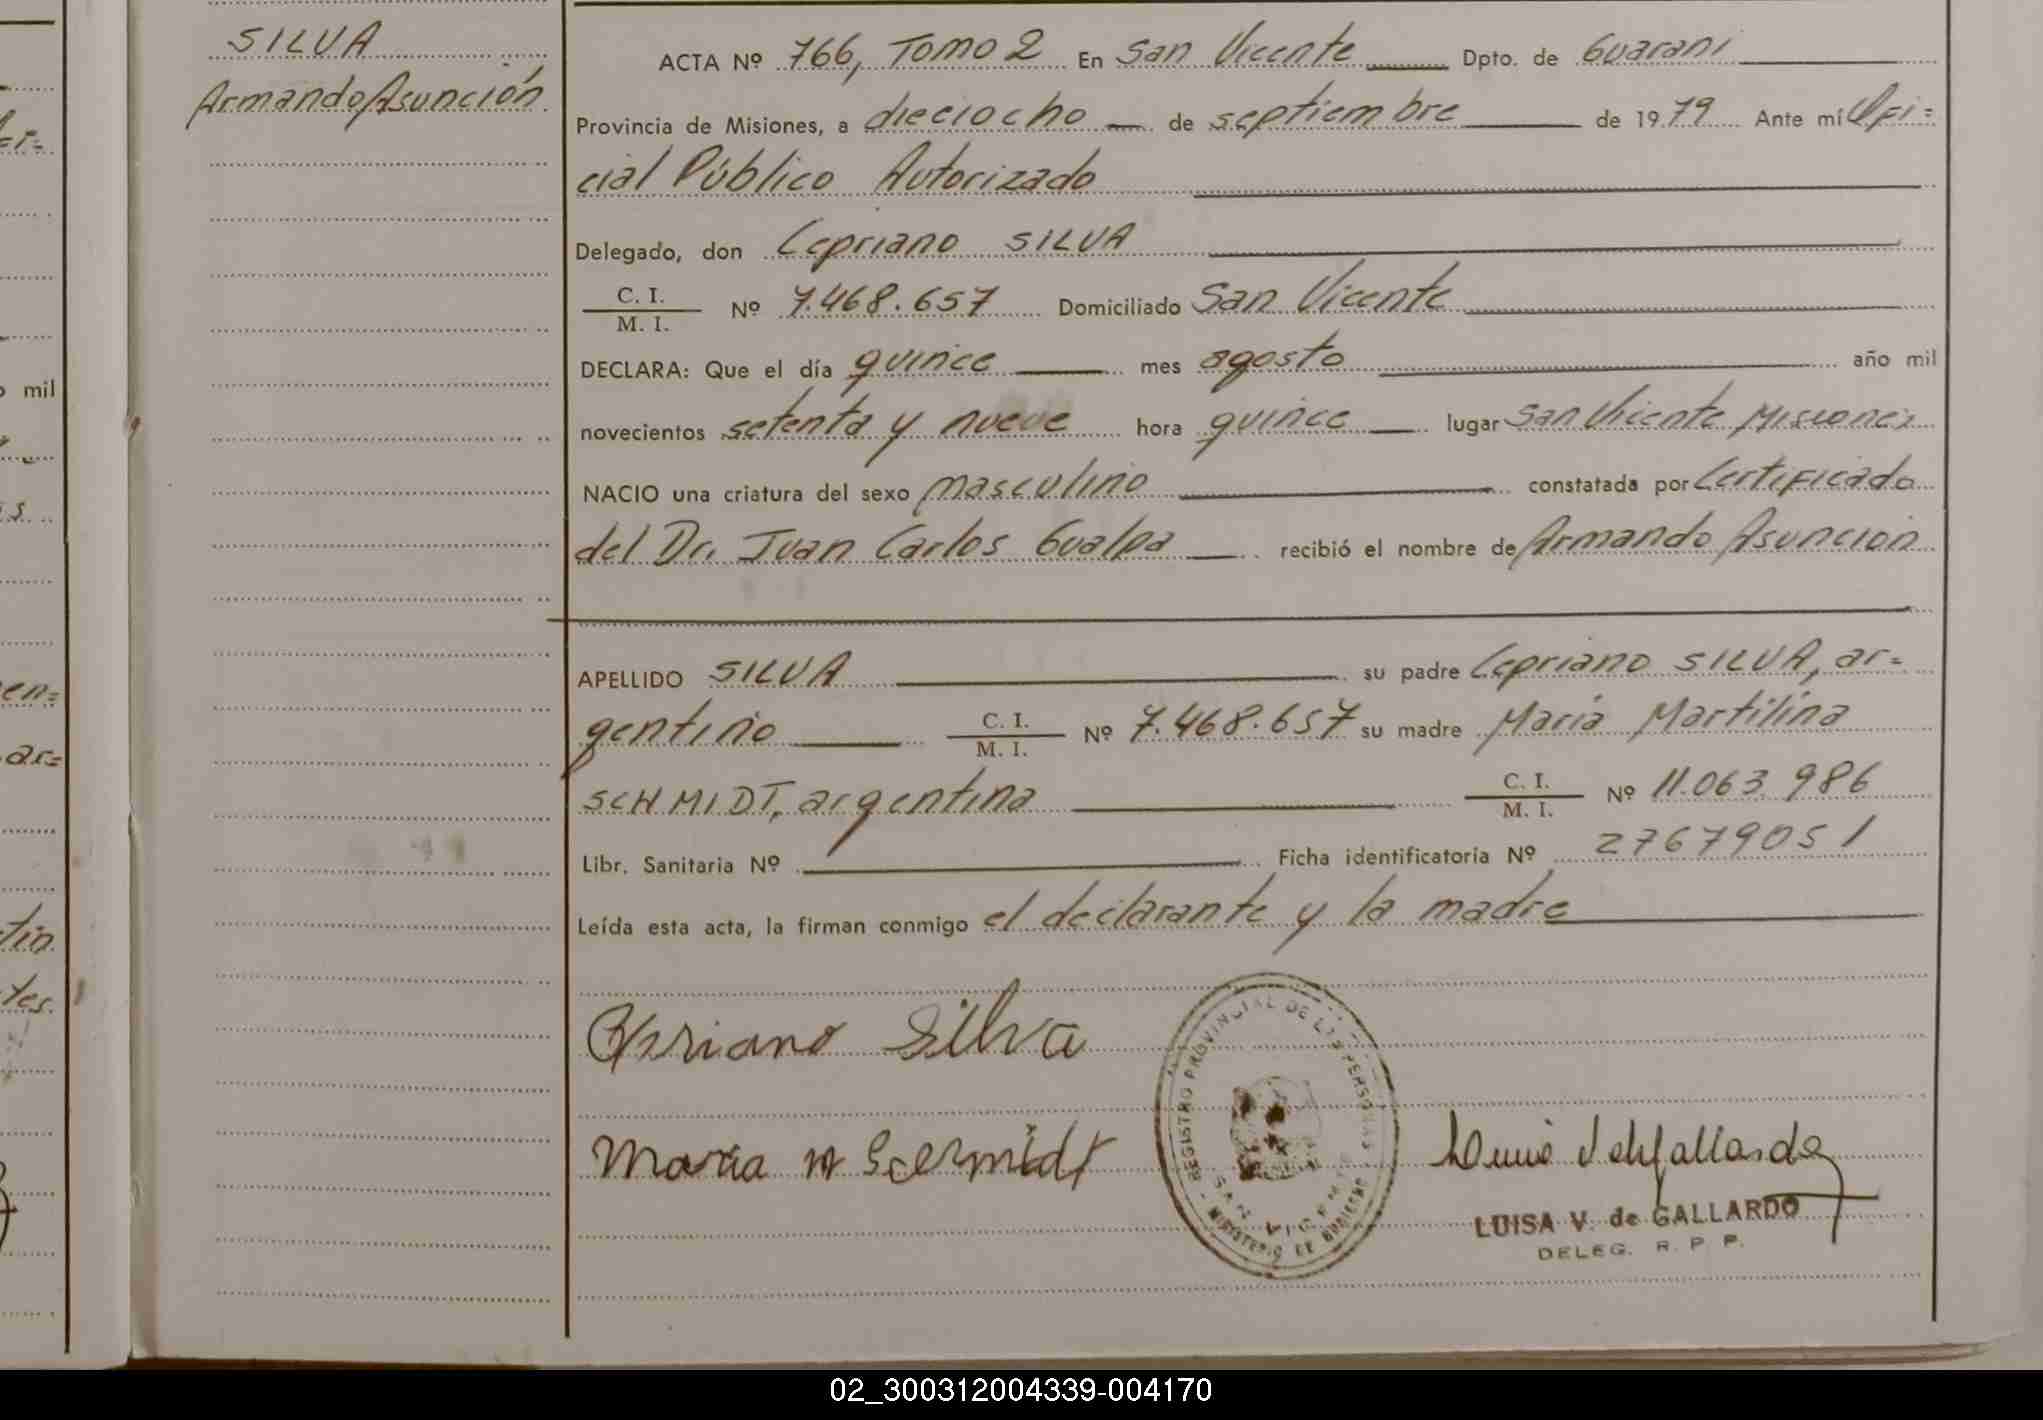 SILVA
Armando Asunción
ACTA Nº 766, Tomo 2 En San Vicente Dpto. de Guaraní
Provincia de Misiones, a dieciocho de septiembre de 1979 Ante mí Ofi=
cial Público Autorizado
Delegado, don Cipriano SILVA
C. I.
M. I. Nº 7.468.657 Domiciliado San Vicente
DECLARA: Que el día quince mes agosto año mil
novecientos setenta y nueve hora quince lugar San Vicente Misiones
NACIO una criatura del sexo masculino constatada por Certificado
del Dr. Juan Carlos Gualpa recibió el nombre de Armando Asunción
APELLIDO SILVA su padre Cipriano SILVA, ar=
gentino C. I.
M. I. Nº 7.468.657 su madre María Martilina
SCHMIDT, argentina C. I.
M. I. Nº 11.063.986
Libr. Sanitaria Nº Ficha identificatoria Nº 27679051
Leída esta acta, la firman conmigo el declarante y la madre
Cipriano Silva
Maria M Scermidt
REGISTRO PROVINCIAL DE LAS PERSONAS
SAN VICENTE
MINISTERIO DE GOBIERNO
LUISA V. de GALLARDO
DELEG. R. P. P.
mil
en=
ar=
tin
tes.
02_300312004339-004170